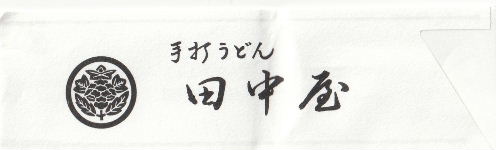 手打うどん
田中屋